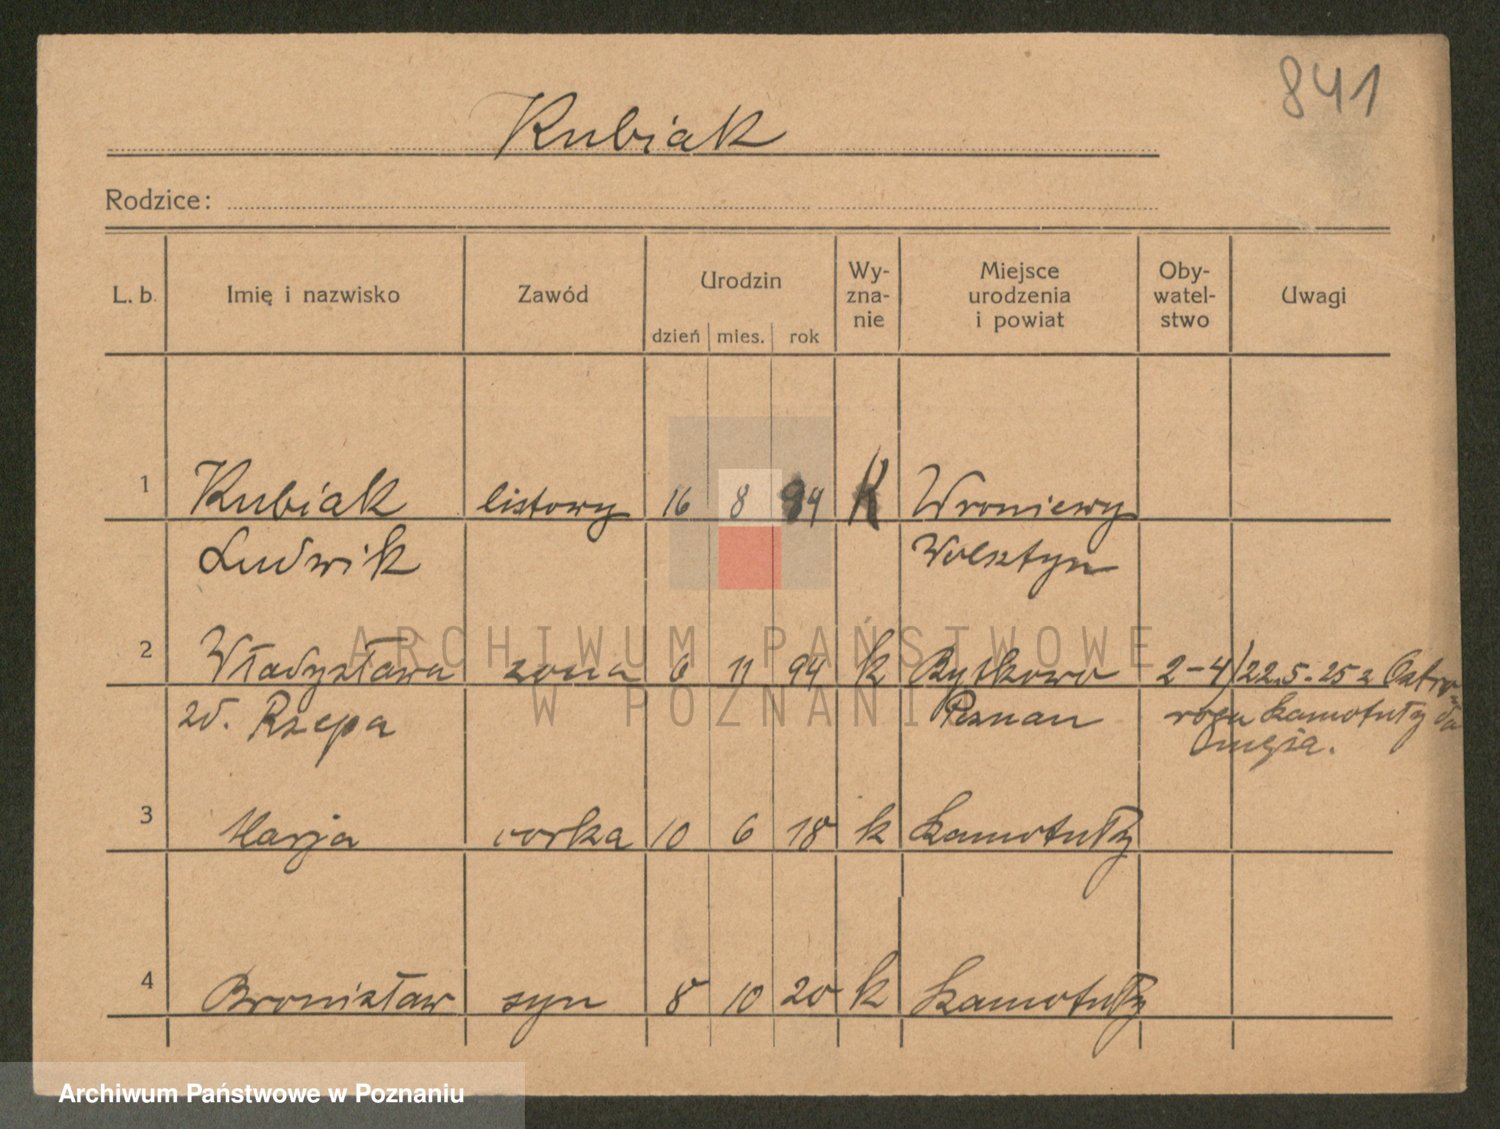 841
Kubiak
Rodzice:
L. b. Imię i nazwisko Zawód Urodzin dzień mies. rok Wy-zna-nie Miejsce urodzenia i powiat Oby-watel-stwo Uwagi
1 Kubiak listowy 16 8 94 K Wroniewy
Ludwik Wolsztyn
2 Władysława zona 6 11 94 k Rytkowo 2-4/22.5.25 z Ostro
zd. Rzepa Poznan roga Szamotuły do
męża.
3 Marja corka 10 6 18 k Szamotuły
4 Bronisław syn 8 10 20 k Szamotuły
ARCHIWUM PAŃSTWOWE
W POZNANI
Archiwum Państwowe w Poznaniu